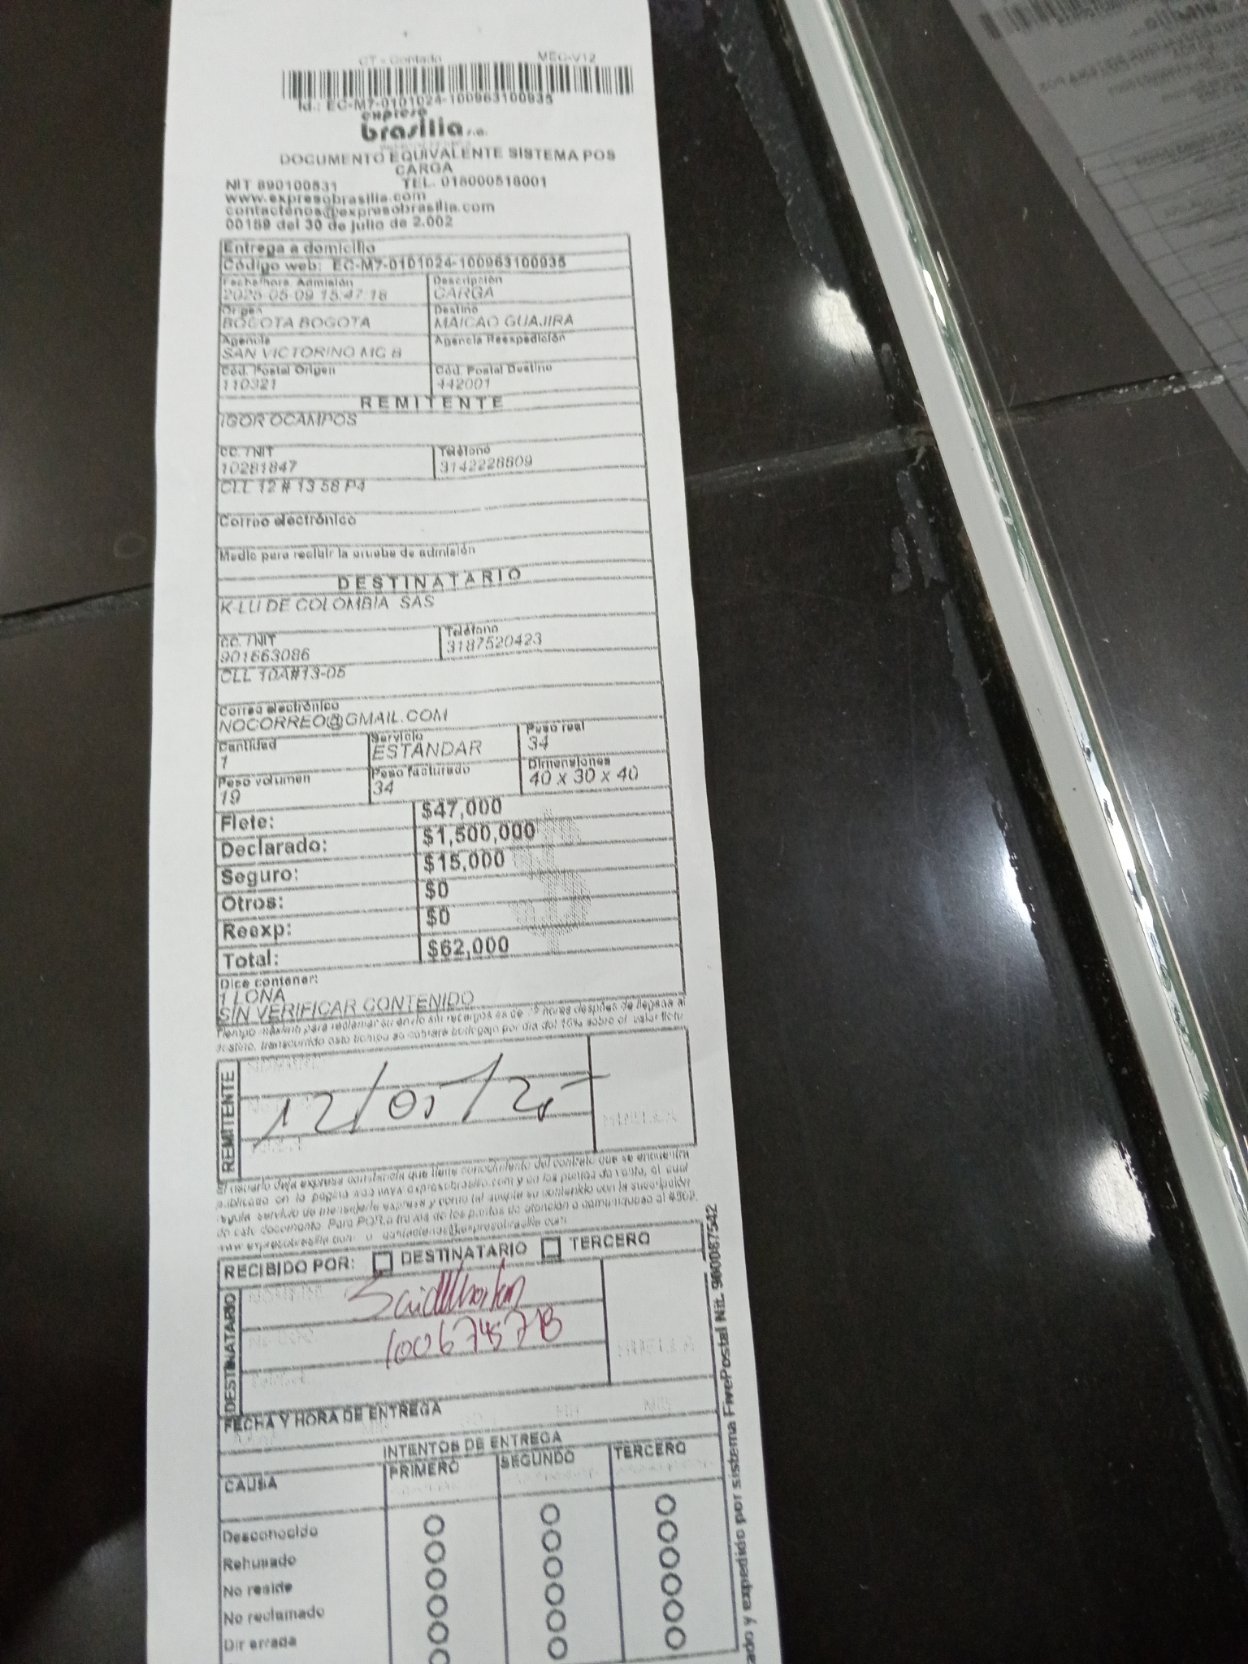 CT - Contado MEC-V12
Id.: EC-M7-0101024-100963100935
expreso
brasilia s.a.
DOCUMENTO EQUIVALENTE SISTEMA POS
CARGA
NIT 890100531 TEL. 018000518001
www.expresobrasilia.com
contactenos@expresobrasilia.com
00189 del 30 de julio de 2.002
Entrega a domicilio
Código web: EC-M7-0101024-100963100935
Fecha/hora Admisión Descripción
2025-05-09 15:47:18 CARGA
Origen Destino
BOGOTA BOGOTA MAICAO GUAJIRA
Agencia Agencia Reexpedición
SAN VICTORINO MC B
Cód. Postal Origen Cód. Postal Destino
110321 442001
REMITENTE
IGOR OCAMPOS
CC. / NIT Teléfono
10281847 3142228809
CLL 12 # 13 58 P4
Correo electrónico
Medio para recibir la prueba de admisión
DESTINATARIO
K-LU DE COLOMBIA SAS
CC. / NIT Teléfono
901663086 3187520423
CLL 10A#13-05
Correo electrónico
NOCORREO@GMAIL.COM
Cantidad Servicio Peso real
1 ESTANDAR 34
Peso volumen Peso facturado Dimensiones
19 34 40 x 30 x 40
Flete: $47,000
Declarado: $1,500,000
Seguro: $15,000
Otros: $0
Reexp: $0
Total: $62,000
Dice contener:
1 LONA
SIN VERIFICAR CONTENIDO
Tiempo máximo para reclamar su envío sin recargos es de horas después de llegada al
destino, transcurrido este tiempo se cobrará bodegaje por día del 10% sobre el valor flete
REMITENTE
HUELLA
El usuario deja expresa constancia que tiene conocimiento del contrato que se encuentra
publicado en la página web www.expresobrasilia.com y en los puntos de venta, el cual
regula servicio de mensajería expresa y como tal acepta su contenido con la suscripción
de este documento. Para PQR a través de los puntos de atención o comunicarse al
www.expresobrasilia.com o contactenos@expresobrasilia.com
RECIBIDO POR: DESTINATARIO TERCERO
DESTINATARIO
HUELLA
FECHA Y HORA DE ENTREGA
INTENTOS DE ENTREGA
CAUSA PRIMERO SEGUNDO TERCERO
Desconocido
Rehusado
No reside
No reclamado
Dir errada
ado y expedido por sistema FivePostal Nit. 900087542